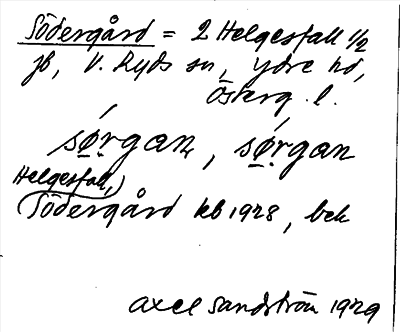 Södergård = 2 Helgesfall 1/2
jb, V. Ryds sn, Ydre hd,
Österg. l.
sǿ̠ṛgan, sǿ̠ṛgan
Helgesfall,
Södergård kb 1928, bek
Axel Sandström 1929